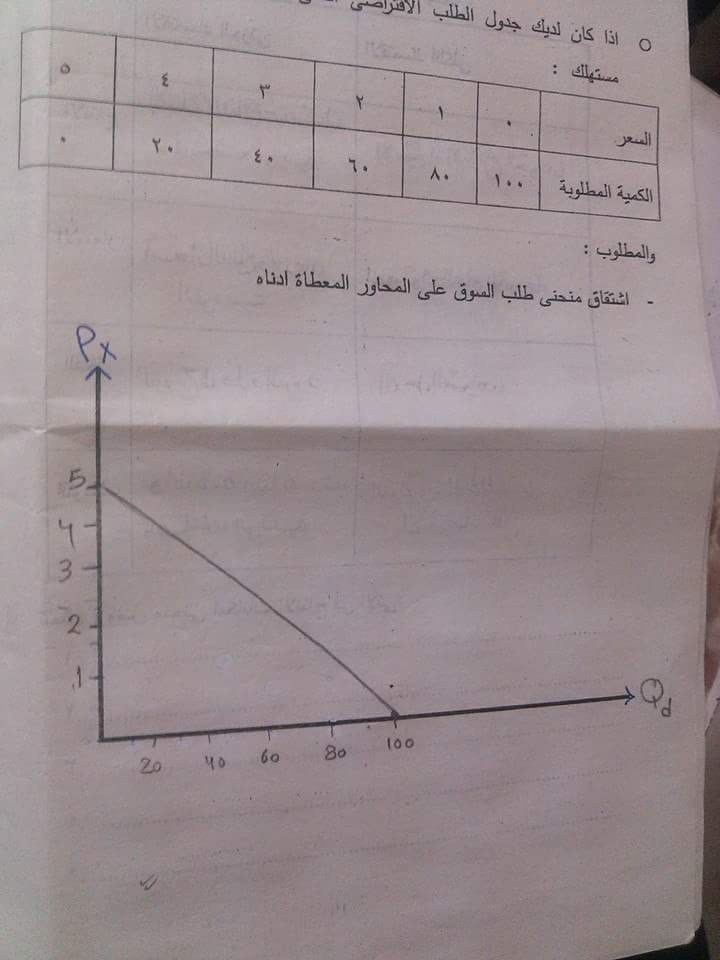 ○ اذا كان لديك جدول الطلب الافتراضي
مستهلك :
السعر ٠ ١ ٢ ٣ ٤ ٥
الكمية المطلوبة ١٠٠ ٨٠ ٦٠ ٤٠ ٢٠ ٠
والمطلوب :
- اشتقاق منحنى طلب السوق على المحاور المعطاة ادناه
Px
5
4
3
2
1
Qd
20 40 60 80 100